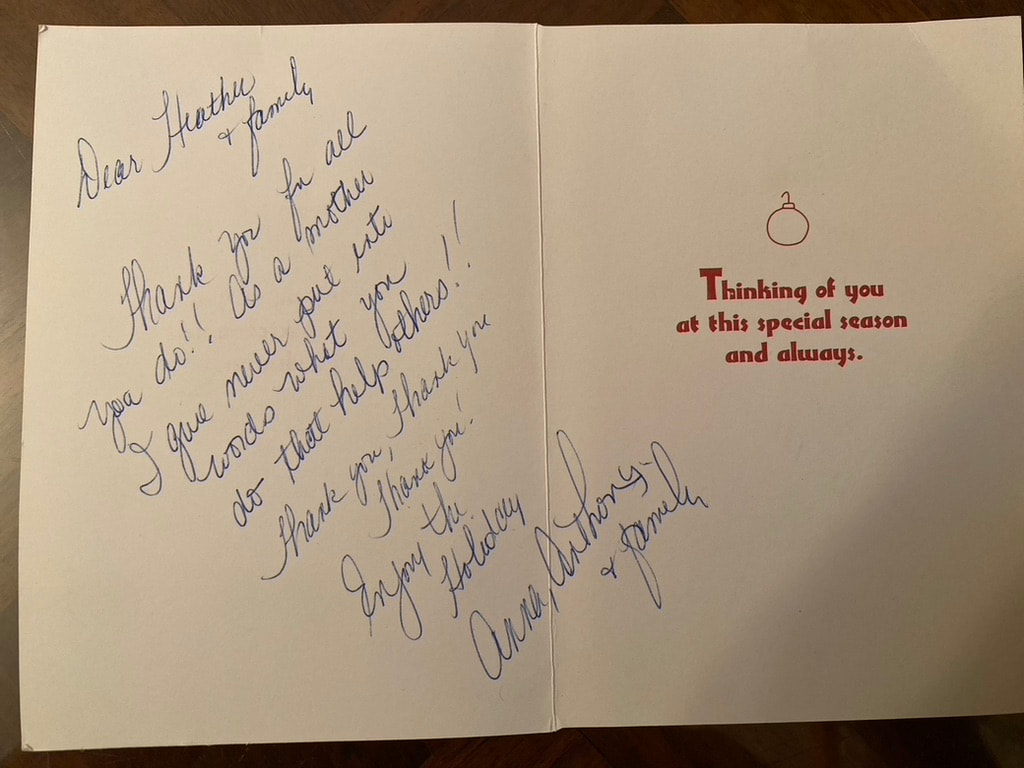 Dear Heather
& family
Thank you for all
you do!! As a mother
I give never put into
words what you
do that help others!!
Thank you, Thank you
Thank you!
Enjoy the
Holiday
Anna, Anthony
& family
Thinking of you
at this special season
and always.